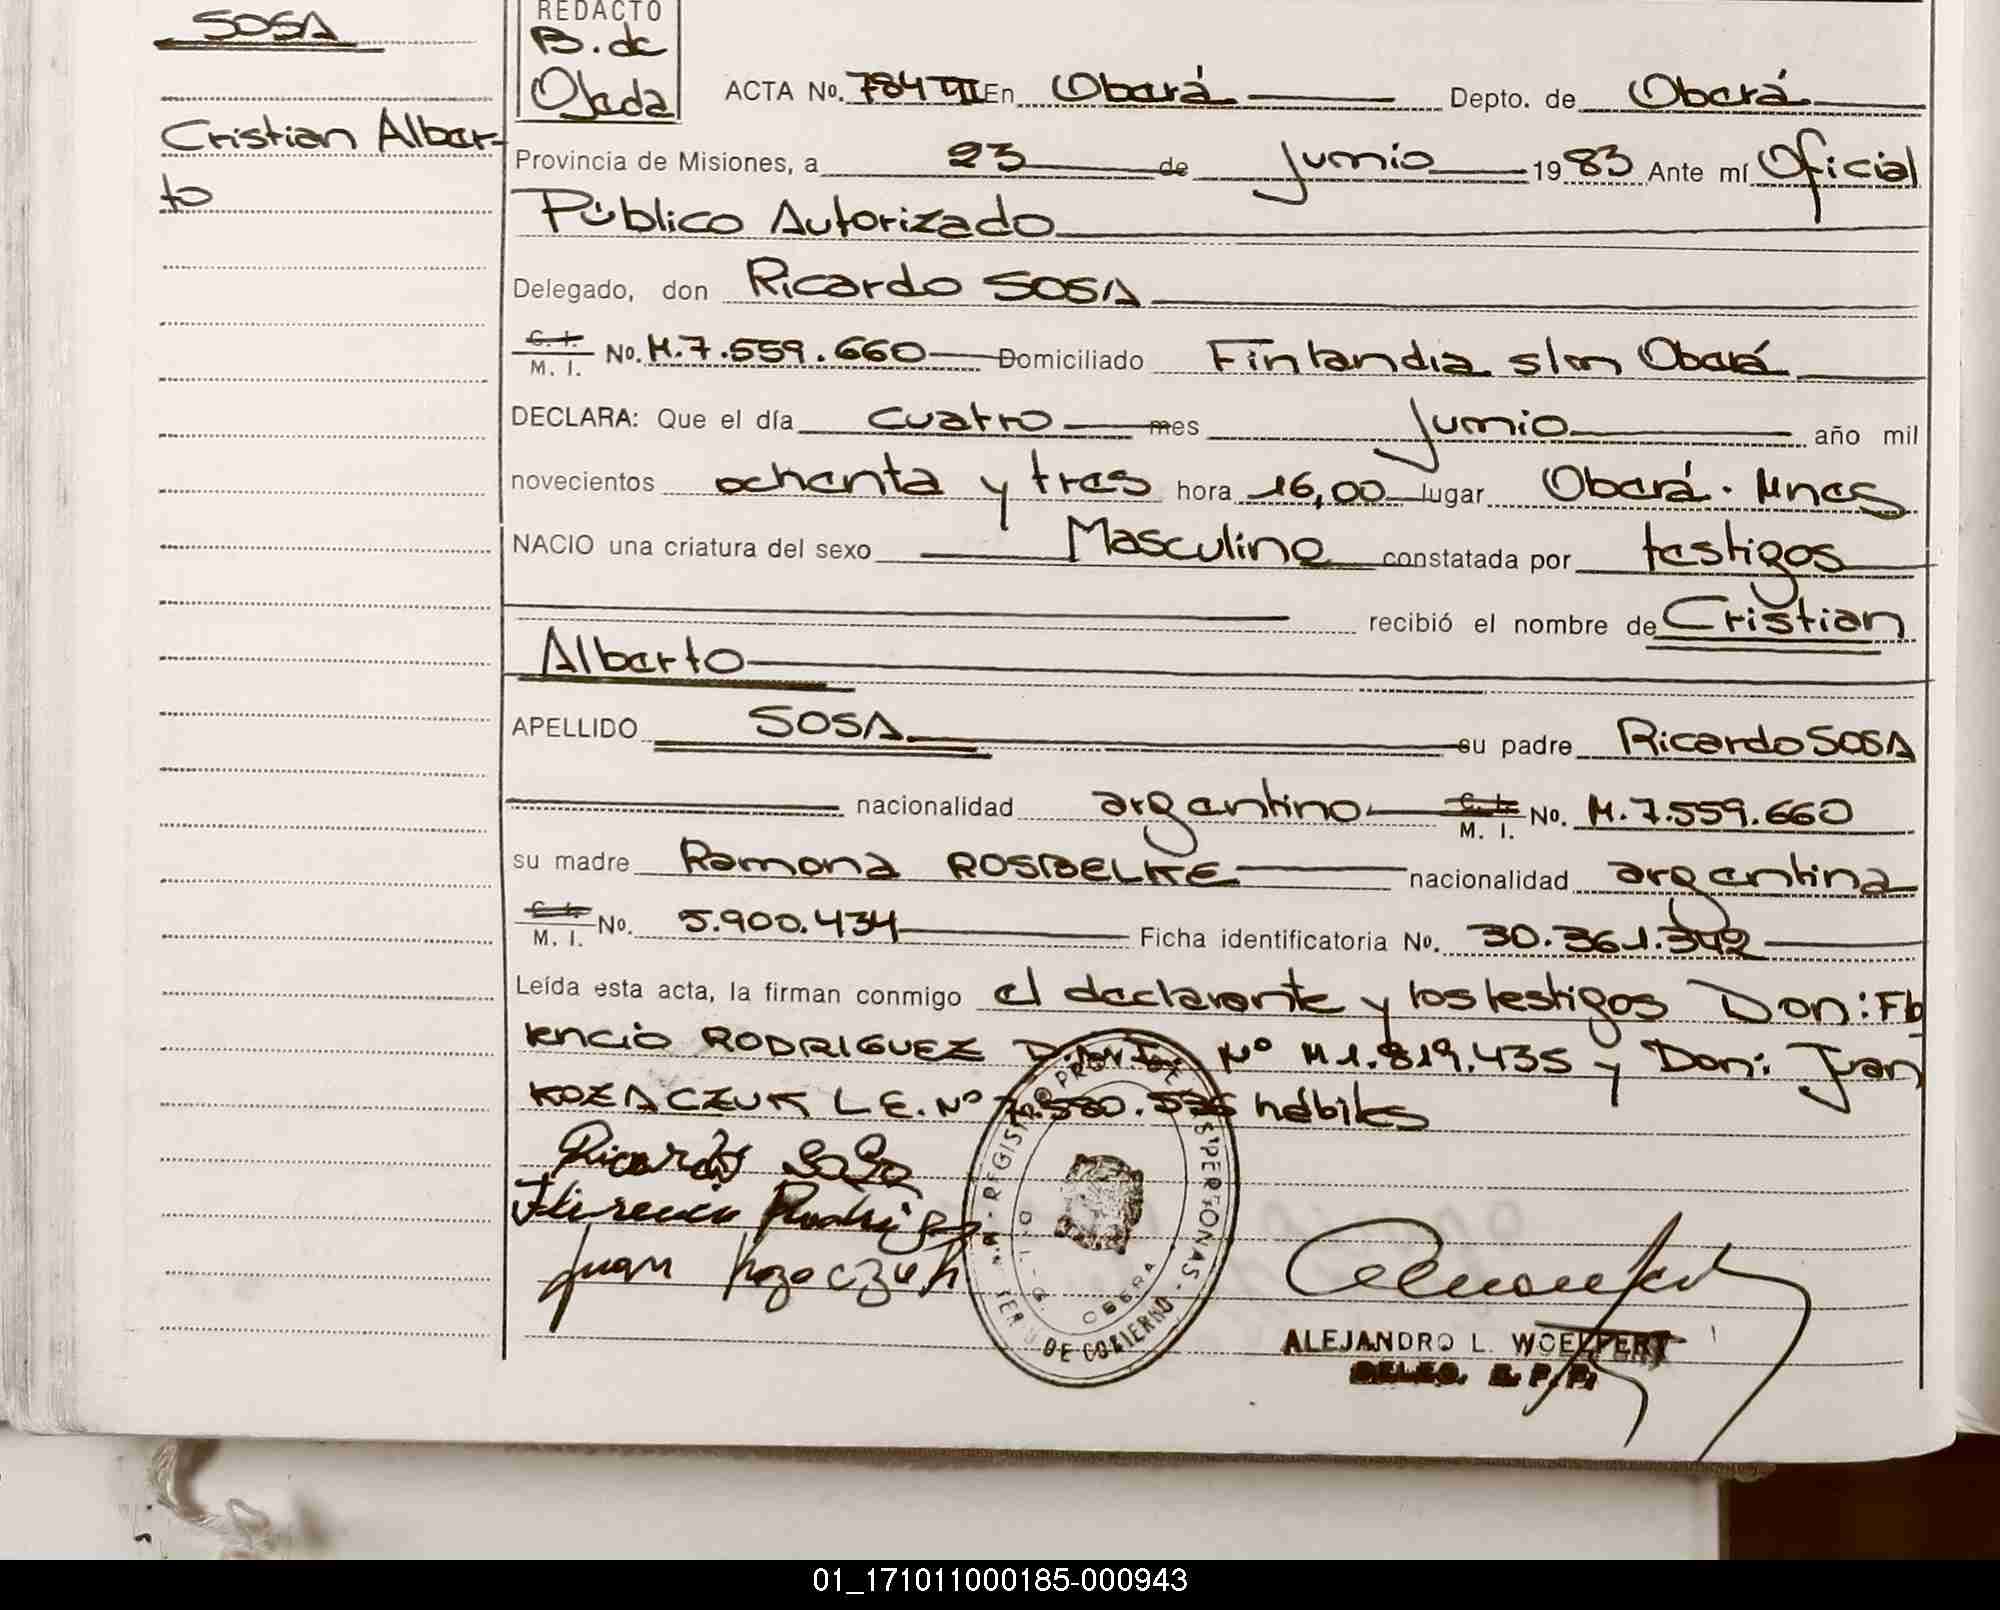 SOSA
Cristian Alber-
to
REDACTO
B. de
Ojeda
ACTA No. 784 VII En Oberá Depto. de Oberá
Provincia de Misiones, a 23 de junio 1983 Ante mí Oficial
Público Autorizado
Delegado, don Ricardo SOSA
C. I.
M. I. No. M.7.559.660 Domiciliado Finlandia s/n Oberá
DECLARA: Que el día cuatro mes junio año mil
novecientos ochenta y tres hora 16,00 lugar Oberá. Mnes
NACIO una criatura del sexo Masculino constatada por testigos
recibió el nombre de Cristian
Alberto
APELLIDO SOSA su padre Ricardo SOSA
nacionalidad argentino C. I.
M. I. No. M.7.559.660
su madre Ramona ROSBELKE nacionalidad argentina
C. I.
M. I. No. 5.900.434 Ficha identificatoria No. 30.361.342
Leída esta acta, la firman conmigo el declarante y los testigos Don:
RODRIGUEZ Nº M1.819.435 y Don: Juan
KOZACZUK L.E. Nº hábiles
Ricardo Sosa
Florencio Rodríguez
Juan Kozaczuk
REGISTRO PROV. DE PERSONAS
DE GOBIERNO
OBERA
ALEJANDRO L. WOELFERT
DELEG. R. P. P.
01_171011000185-000943